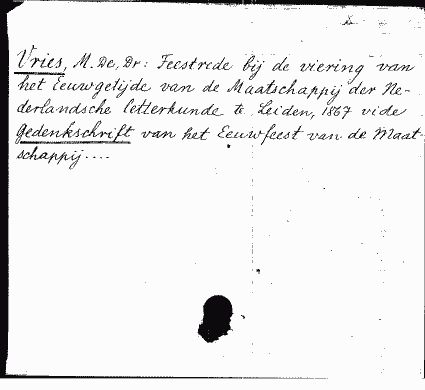 Vries, M. De, Dr: Feestrede bij de viering van
het Eeuwgetijde van de Maatschappij der Ne-
derlandsche letterkunde te Leiden, 1867 vide
Gedenkschrift van het Eeuwfeest van de Maat-
schappij....